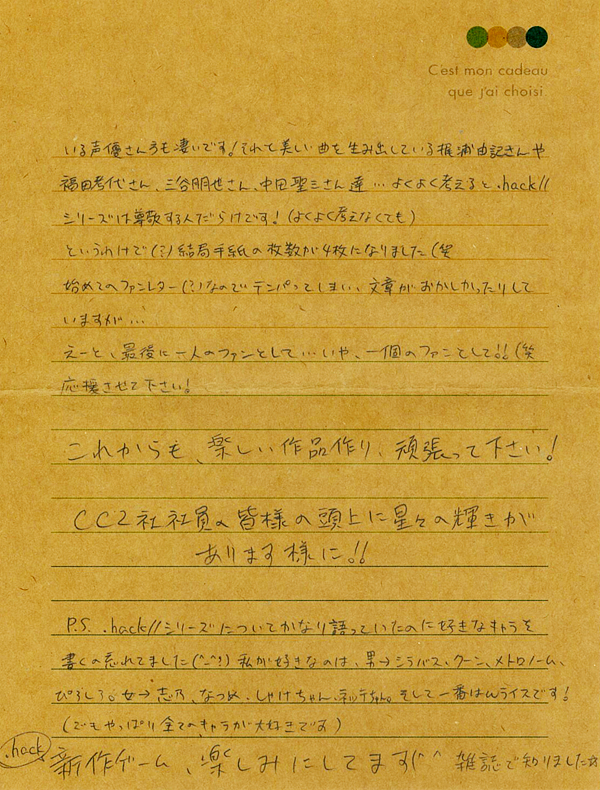 C'est mon cadeau
que j'ai choisi.
いる声優さん方も凄いです!それと美しい曲を生み出している梶浦由記さんや
福田考代さん、三谷朋世さん、中田聖三さん達…よくよく考えると.hack//
シリーズは尊敬する人だらけです!(よくよく考えなくても)
というわけで(?)結局手紙の枚数が4枚になりました(笑
始めてのファンレター(?)なのでテンパってしまい、文章がおかしかったりして
いますが…
えーと、最後に一人のファンとして…いや、一個のファンとして!!(笑
応援させて下さい!
これからも、楽しい作品作り、頑張って下さい!
CC2社社員の皆様の頭上に星々の輝きが
あります様に!!
P.S. .hack//シリーズについてかなり語っていたのに好きなキャラを
書くの忘れてました(^_^;)私が好きなのは、男→シラバス、クーン、メトロノーム、
ぴろし3。女→志乃、なつめ、しゃけちゃん、そして一番はんライスです!
(でもやっぱり全てのキャラが大好きです)
.hack新作ゲーム、楽しみにしてます(^^ 雑誌で知りました☆